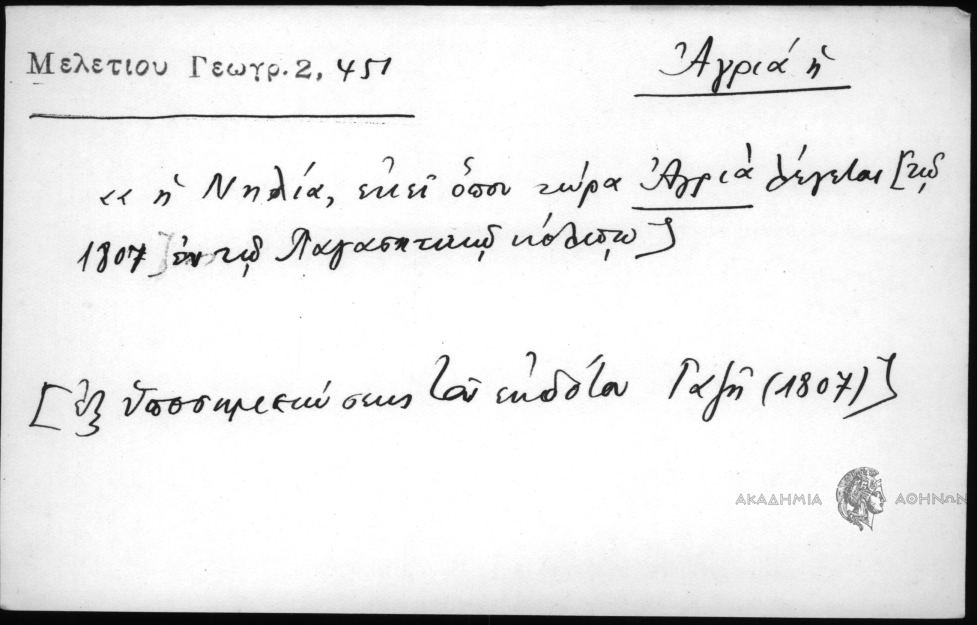 Μελετιου Γεωγρ. 2, 451
Ἀγριά ἡ
«ἡ Νηλία, ἐκεῖ ὅπου τώρα Ἀγριὰ λέγεται [τῷ
1807] ἐν τῷ Παγασητικῷ κόλπῳ]
[ἐξ ὑποσημειώσεως τοῦ ἐκδότου Γαζῆ (1807)]
ΑΚΑΔΗΜΙΑ ΑΘΗΝΩΝ